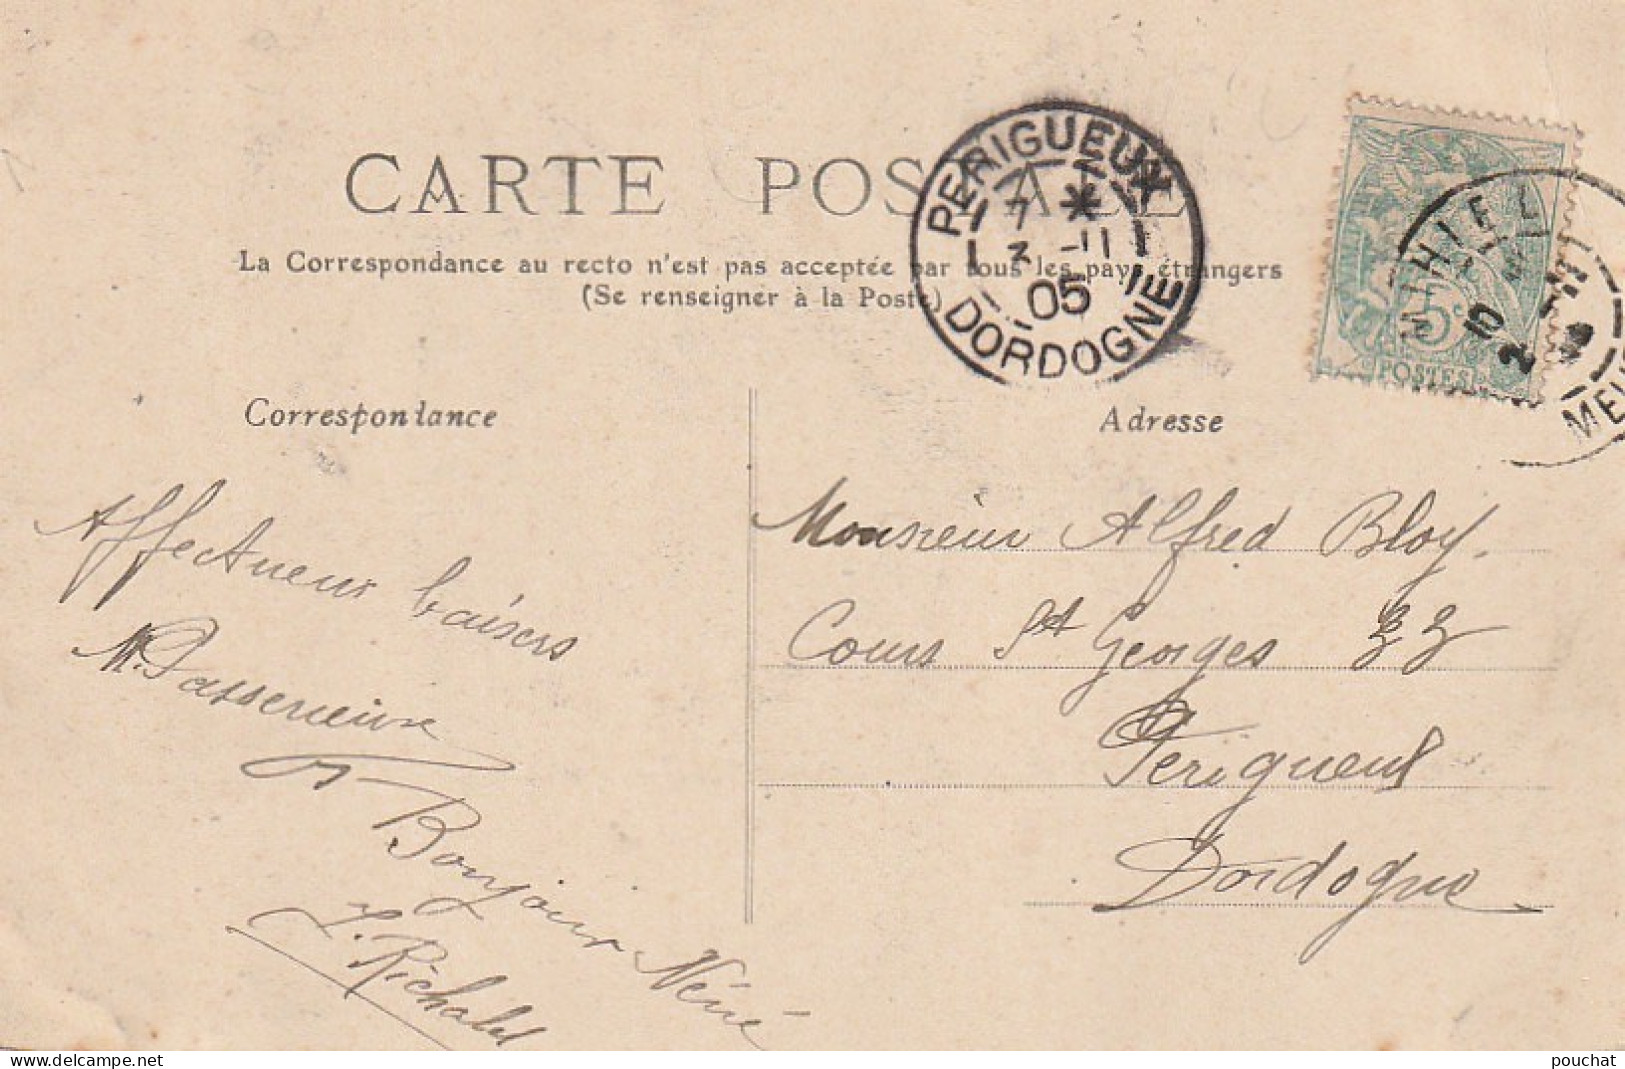 CARTE POSTALE
La Correspondance au recto n'est pas acceptée par tous les pays étrangers
(Se renseigner à la Poste)
PERIGUEUX
7 *
3 -11
05
DORDOGNE
MIHIEL
10
2
5c
POSTES
Correspondance
Adresse
Affectueux baisers
Bonjour Néné
Monsieur Alfred Bloy.
Cours St Georges 33
Perigueux
Dordogne
www.delcampe.net
pouchat